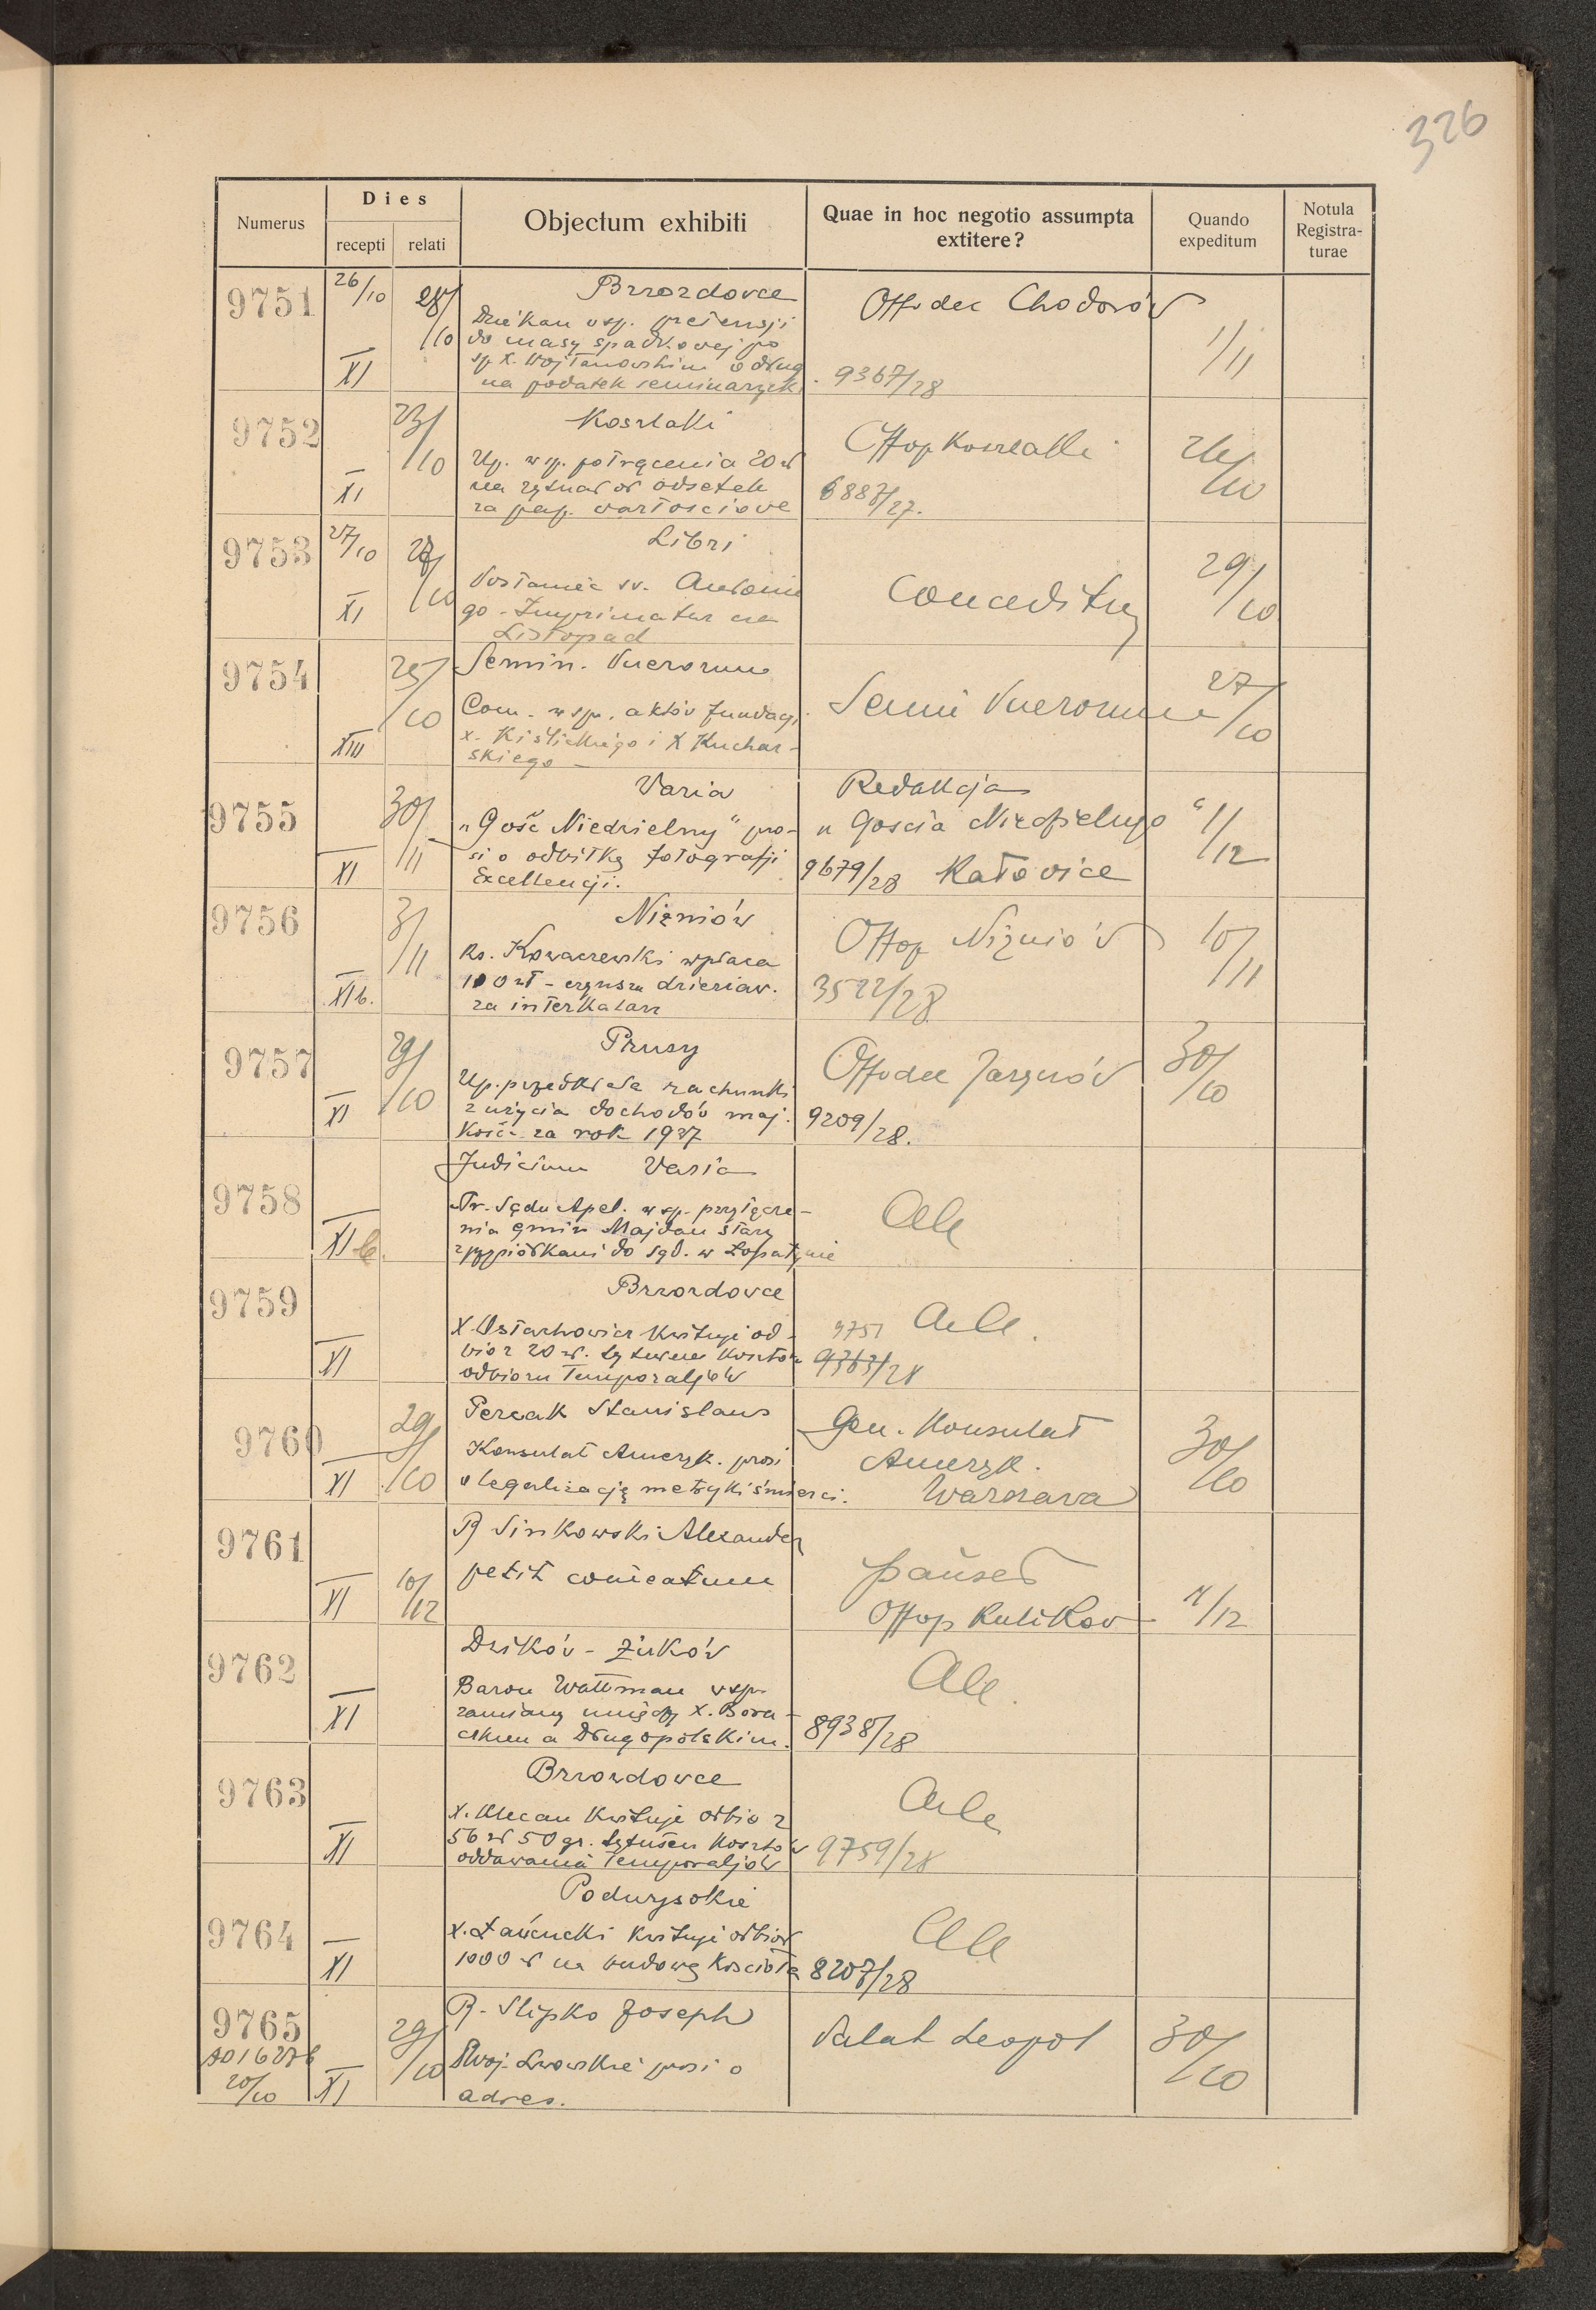 326
Numerus
Dies
recepti
relati
Objectum exhibiti
Quae in hoc negotio assumpta
extitere?
Quando
expeditum
Notula
Registra-
turae
9751
26/10
28/10
XI
Brzozdovce
Dziekan wsp. pretensji
do masy spadkowej po
sp. X. Wojtanowskim o dług
na podatek seminarzycki
Offo dec Chodorów
9367/28
1/11
9752
23/10
XI
Koszlaki
Up. w sp. potrącenia 20 zł
na rzecz odsetek
za pap. wartościowe
Offop Koszlaki
6887/27.
26/10
9753
27/10
28/10
XI
Libri
Posłaniec św. Antonie
go - Imprimatur na
Listopad
Conceditur
29/10
9754
25/10
XIII
Semin. Puerorum
Com. w sp. aktów fundacji
X. Kiślickiego i X Kuchar-
skiego
Semi Puerorum
27/10
9755
30/11
XI
Varia
"Gość Niedzielny" pro-
si o odbitkę fotografji
Excellencji.
Redakcja
"Gościa Niedzielnego"
9679/28 Katovice
1/12
9756
3/11
XI b.
Niżniów
Ks. Kowaczewski wpłaca
100 zł - czynszu dzierżaw.
za interkalar
Offop Niżniów
3522/28
10/11
9757
29/10
XI
Prusy
Up. przedkłada rachunki
z użycia dochodów maj.
Kośc. za rok 1927
Offo dec Jaryczów
9209/28.
30/10
9758
XI b.
Judicium Varia
Pr. Sądu Apel. w sp. przyłącze-
nia gmin Majdan stary
z przypiórkami do sąd. w Łopatynie
Ale
9759
XI
Brzozdovce
X. Ostachowicz kwituje od-
biór 20 zł. tytułem kosztów
odbioru Temporaljów
9751 Ale.
9363/28
9760
29/10
XI
Percak Stanislaus
Konsulat Ameryk. prosi
o legalizację metryki śmierci.
Gen. Konsulat
Ameryk.
Warszava
30/10
9761
10/12
XI
R Sinkowski Alexander
petit
Offop Kulikow
11/12
9762
XI
Dzików - Żuków
Baron Wattman w sp.
zamiany między X. Bora-
a Długopolskim.
Ale.
8938/28
9763
XI
Brzozdowce
X. kwituje odbiór
56 zł 50 gr. tytułem kosztów
oddawania Temporaljów
Ale
9759/28
9764
XI
Podwysokie
X. Łańcucki kwituje odbiór
1000 zł na budowę kościoła
Ale
8207/28
9765
20/10
29/10
XI
R. Slipko Joseph
Woj. Lwowskie prosi o
adres.
Palat Leopol
30/10